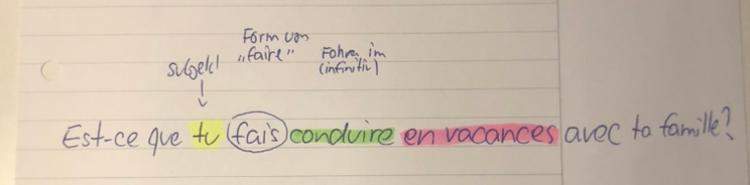 Form von
"faire"
Fahren im
(infinitiv)
subjekt
Est-ce que tu fais conduire en vacances avec ta famille?